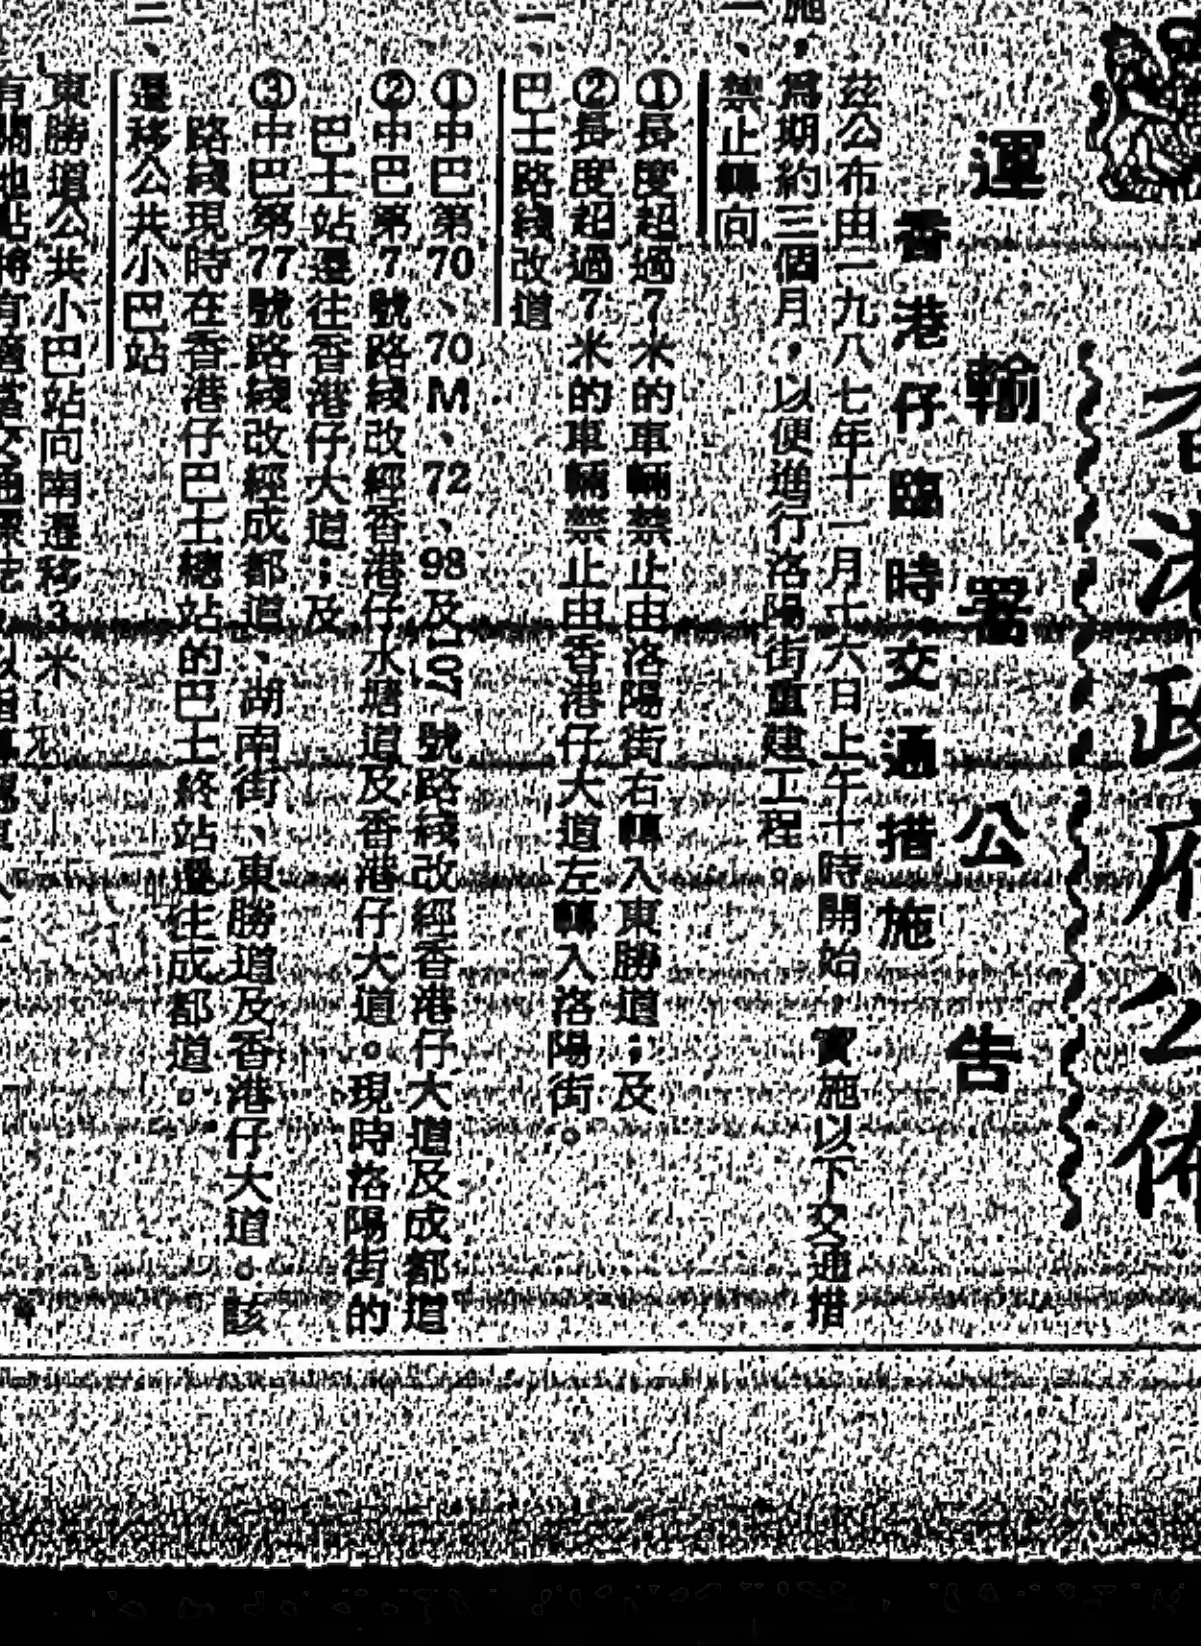 香港政府公佈
運輸署公告
香港仔臨時交通措施
茲公布由一九八七年十一月十六日上午十時開始，實施以下交通措
施，爲期約三個月，以便進行洛陽街重建工程。
一、禁止轉向
①長度超過7米的車輛禁止由洛陽街右轉入東勝道；及
②長度超過7米的車輛禁止由香港仔大道左轉入洛陽街。
二、巴士路綫改道
①中巴第70、70M、72、98及107號路綫改經香港仔大道及成都道
②中巴第7號路綫改經香港仔水塘道及香港仔大道。現時洛陽街的
巴士站遷往香港仔大道；及
③中巴第77號路綫改經成都道、湖南街、東勝道及香港仔大道。該
路綫現時在香港仔巴士總站的巴士終站遷往成都道。
三、遷移公共小巴站
東勝道公共小巴站向南遷移3米
有關地點將有適當交通標誌